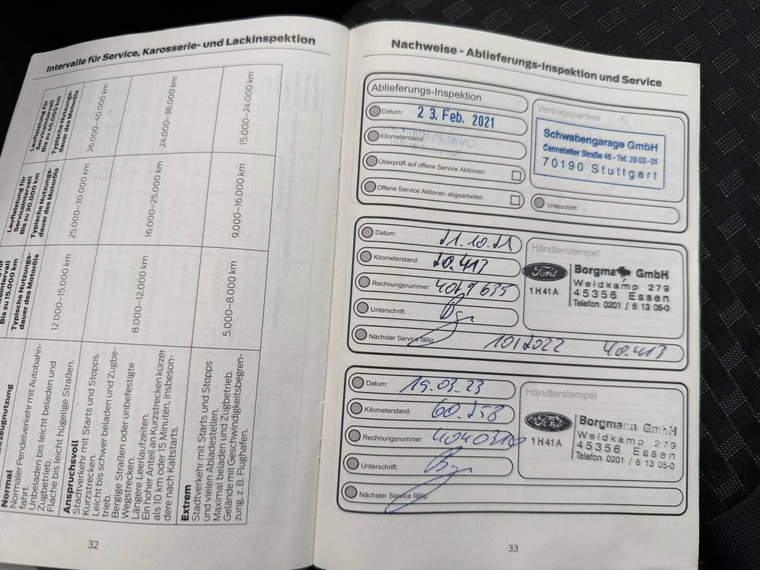 Intervalle für Service, Karosserie- und Lackinspektion
Typische Nutzungsdauer des Motoröls
Laufleistung für Serviceintervall
Bis zu 15.000 km
Typische Nutzungs-
dauer des Motoröls
Laufleistung für
Serviceintervall
Bis zu 30.000 km
Typische Nutzungs-
dauer des Motoröls
Laufleistung für
Serviceintervall
Bis zu 40.000 km
Normal
Normaler Pendelverkehr mit Autobahn-
fahrt.
Unbeladen bis leicht beladen und
Zugbetrieb.
Flache bis leicht hügelige Straßen.
12.000–15.000 km
25.000–30.000 km
36.000–40.000 km
Anspruchsvoll
Stadtverkehr mit Starts und Stopps.
Kurzstrecken.
Leicht bis schwer beladen und Zugbe-
trieb.
Bergige Straßen oder unbefestigte
Wegstrecken.
Längere Leerlaufzeiten.
Ein hoher Anteil an Kurzstrecken kürzer
als 10 km oder 15 Minuten, insbeson-
dere nach Kaltstarts.
8.000–12.000 km
16.000–25.000 km
24.000–36.000 km
Extrem
Stadtverkehr mit Starts und Stopps
und vielen Abladestellen.
Maximal beladen und Zugbetrieb.
Gelände mit Geschwindigkeitsbegren-
zung, z. B. Flughafen.
5.000–8.000 km
9.000–16.000 km
15.000–24.000 km
32
Nachweise - Ablieferungs-Inspektion und Service
Ablieferungs-Inspektion
Datum: 23. Feb. 2021
Kilometerstand:
Überprüft auf offene Service Aktionen:
Offene Service Aktionen abgearbeitet:
Vertragspartner
Schwabengarage GmbH
Cannstatter Straße 46 - Tel. 28 03-01
70190 Stuttgart
Unterschrift:
Datum: 21.10.21
Kilometerstand: 20.413
Rechnungsnummer:
Unterschrift:
Nächster Service fällig: 10/2022 40.413
Händlerstempel
Ford
1 H 41 A
Borgmann GmbH
Weidkamp 279
45356 Essen
Telefon 0201 / 6 13 05-0
Datum: 15.03.23
Kilometerstand: 60.253
Rechnungsnummer:
Unterschrift:
Nächster Service fällig:
Händlerstempel
Ford
1 H 41 A
Borgmann GmbH
Weidkamp 279
45356 Essen
Telefon 0201 / 6 13 05-0
33